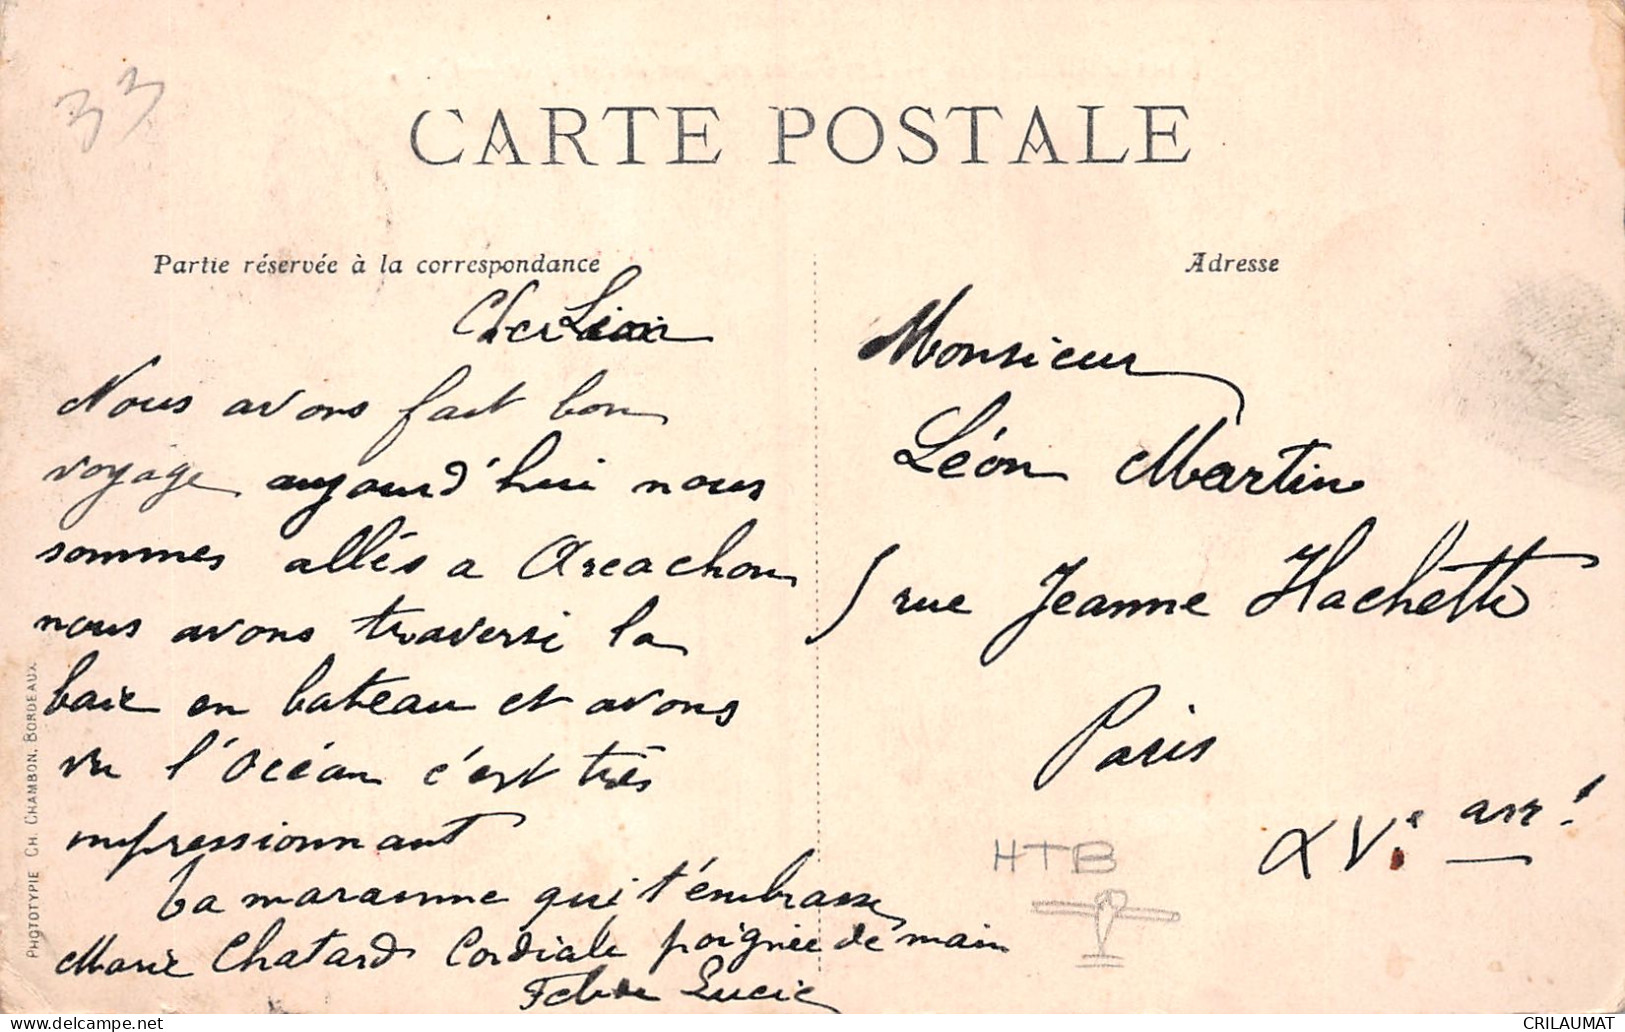 33
CARTE POSTALE
Partie réservée à la correspondance
Cher Léon
Nous avons fait bon
voyage aujourd'hui nous
sommes allés a Arcachon
nous avons traversé la
baie en bateau et avons
vu l'Océan c'est très
impressionnant
ta marainne qui t'embrasse
Marie Chatard Cordiale poignée de main
Lucie
Adresse
Monsieur
Léon Martin
5 rue Jeanne Hachette
Paris
XVe arr!
HTB
PHOTOTYPIE CH. CHAMBON, BORDEAUX
CRILAUMAT